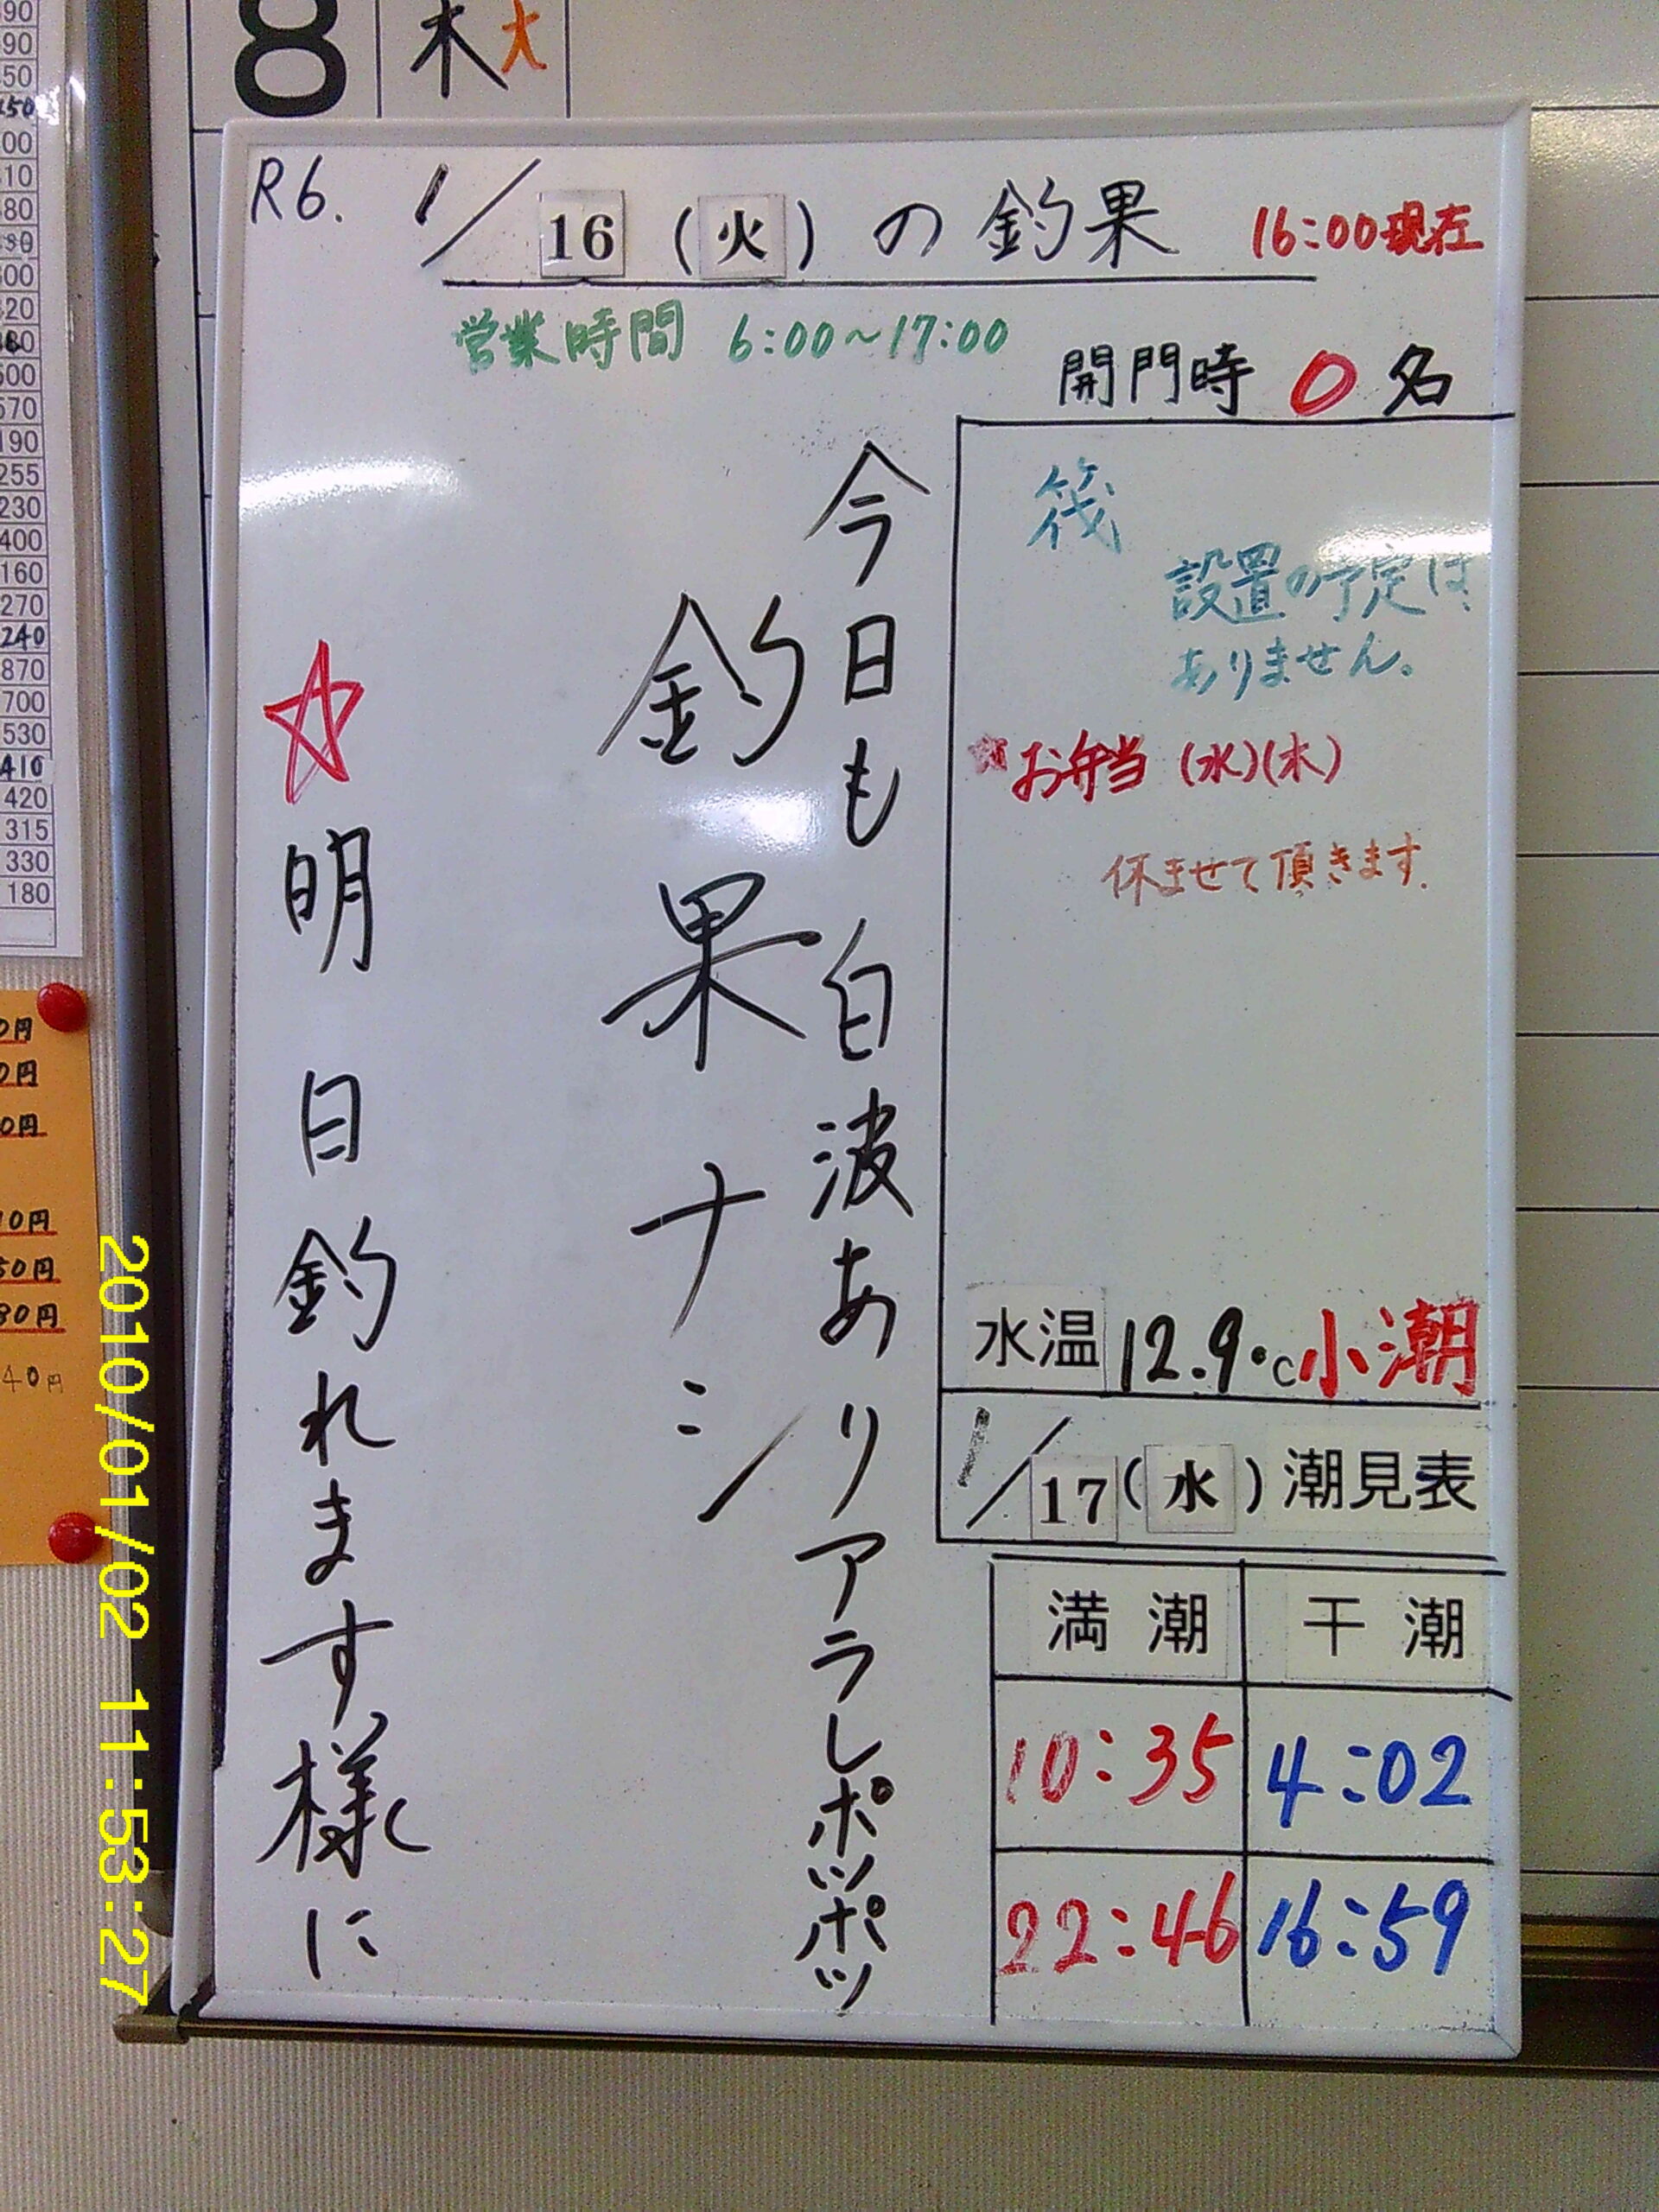 8 木 大
R6. 1/16 (火) の釣果 16:00現在
営業時間 6:00～17:00
開門時 0名
筏
設置の予定は
ありません。
☆お弁当 (水)(木)
休ませて頂きます.
今日も白波ありアラレポツポツ
釣果ナシ
☆明日釣れます様に
水温 12.9℃ 小潮
1/17 (水) 潮見表
満潮 干潮
10:35 4:02
22:46 16:59
255
230
400
160
270
240
870
700
530
410
420
315
330
180
2010/01/02 11:53:27